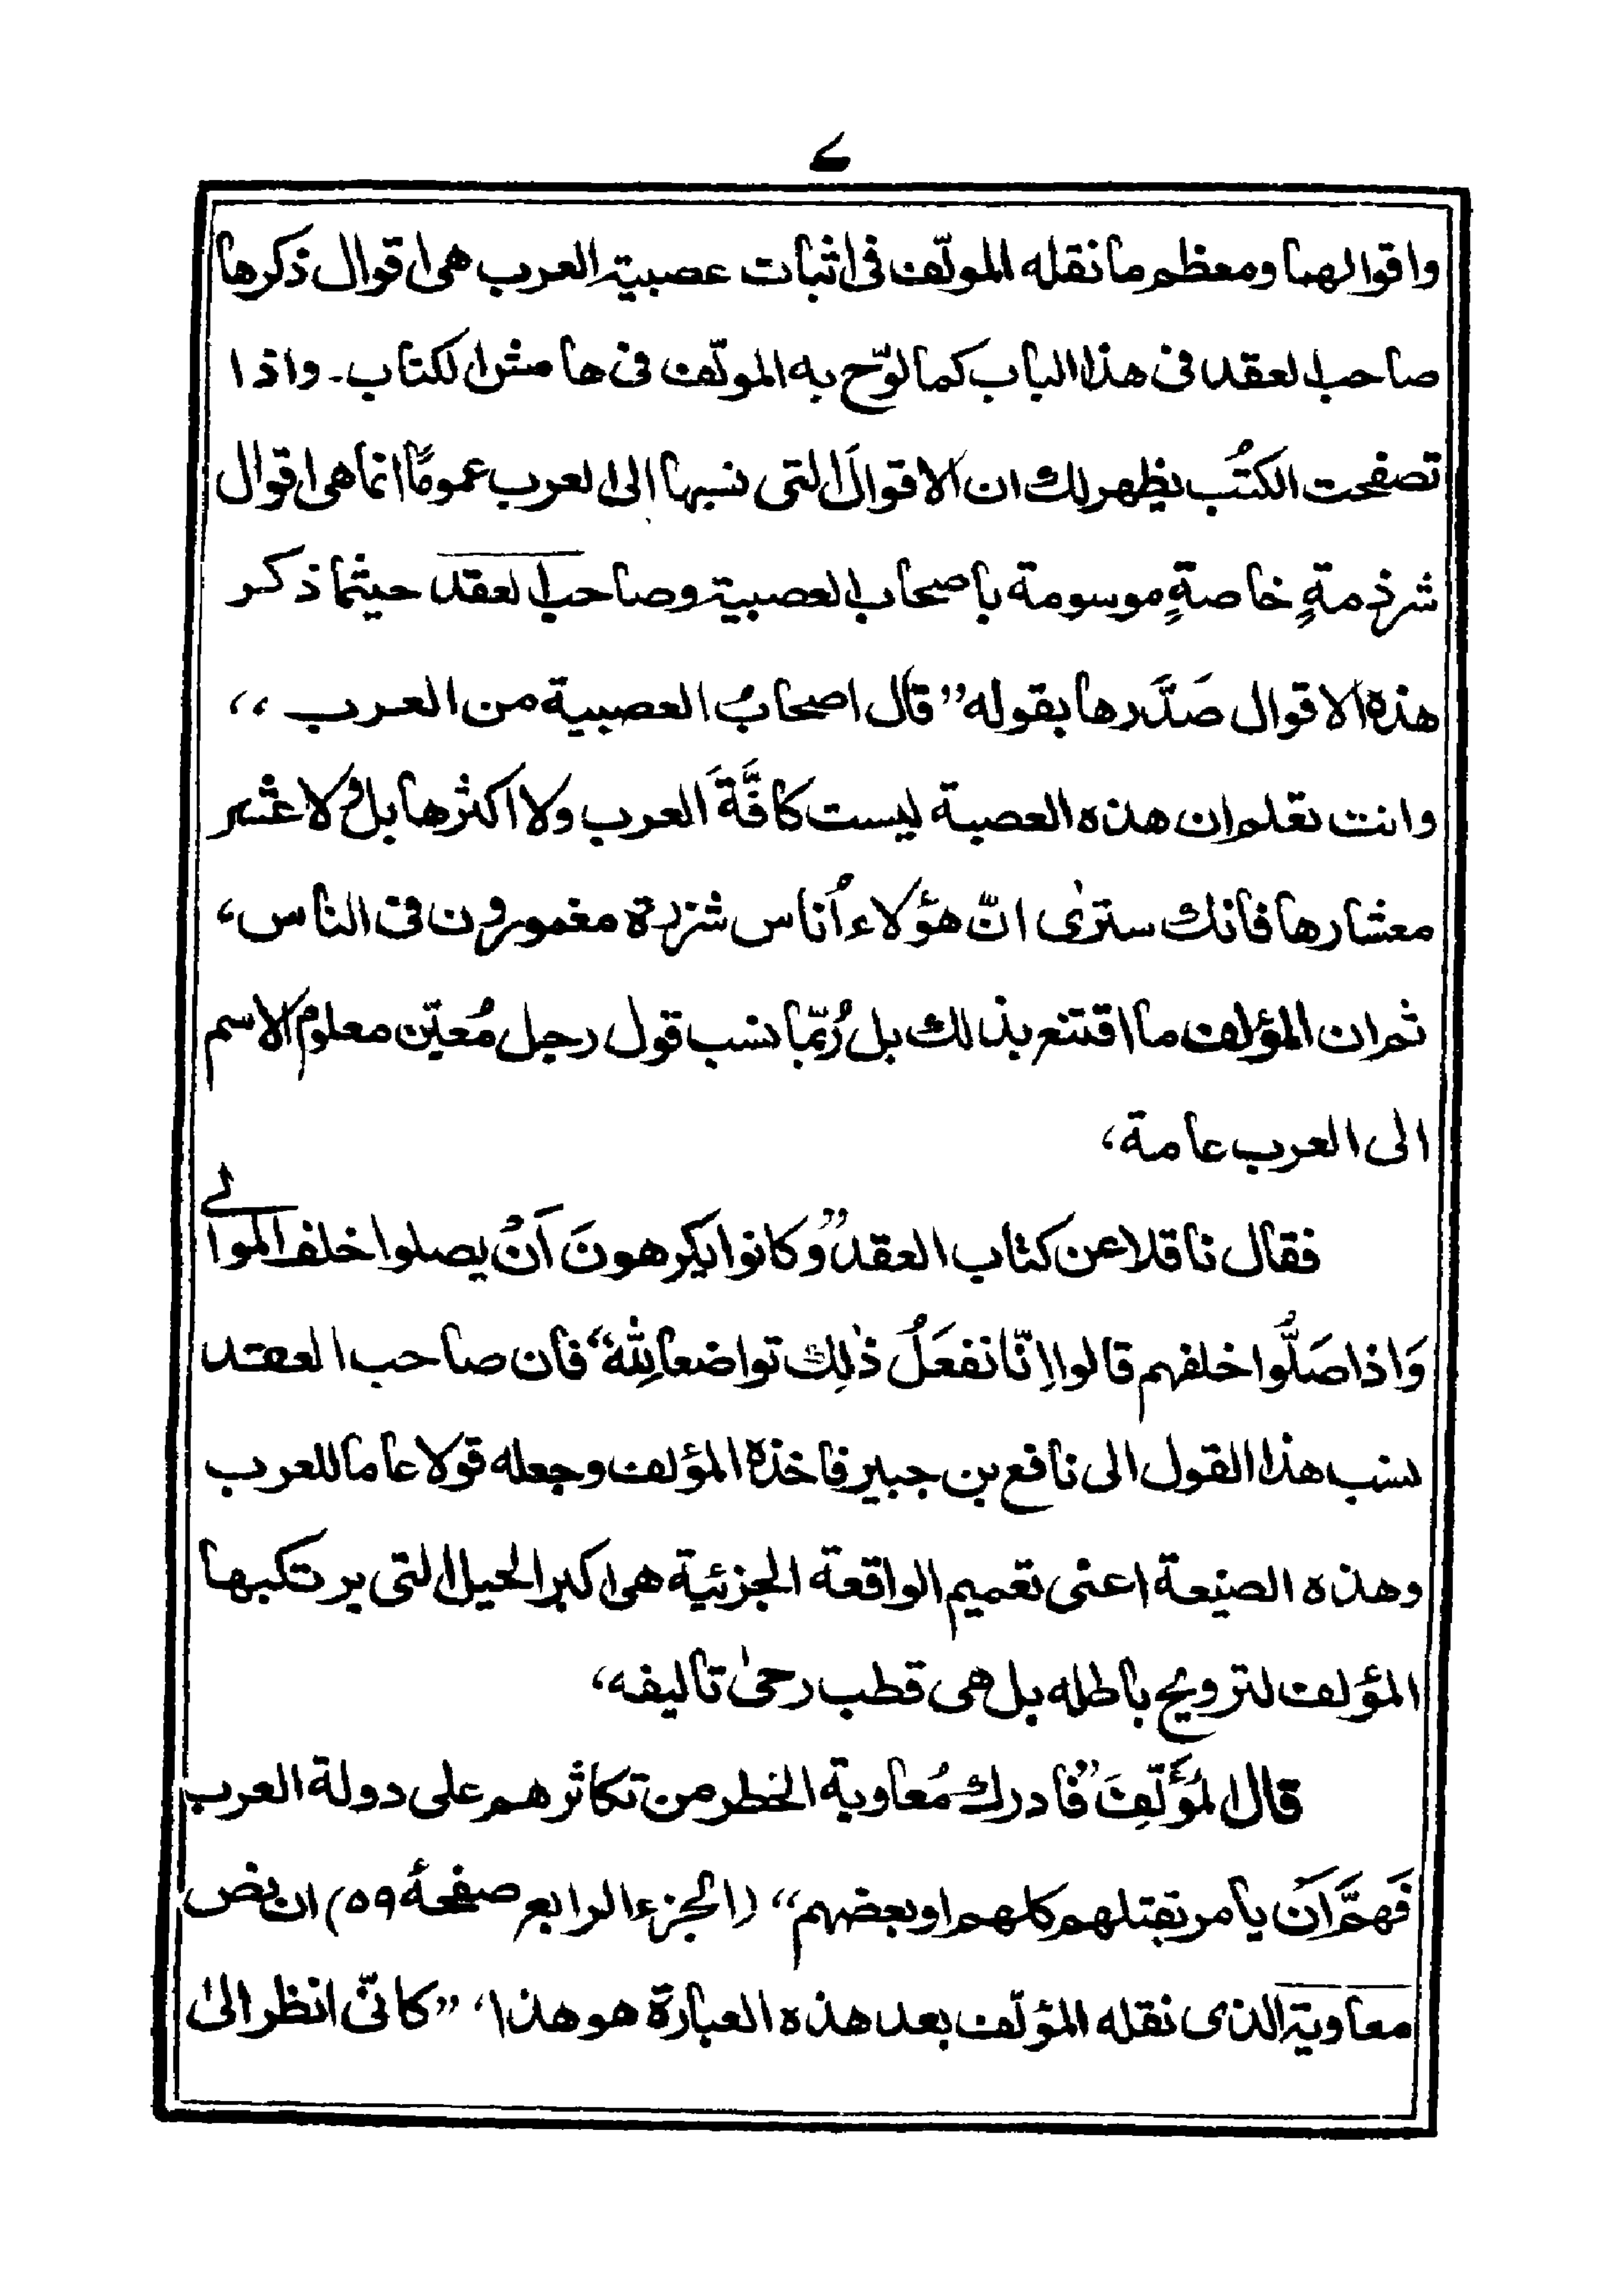 ۷
واقوالهما ومعظم ما نقله المولّف فى اثبات عصبية العرب هى اقوال ذكرها
صاحب العقد فى هذا الباب كما لوّح به المولّف فى هامش الكتاب۔ واذا
تصفحت الكتُب يظهر لك ان الاقوالَ التى نسبها الى العرب عمومًا انما هى اقوال
شرذمةٍ خاصةٍ موسومة باصحاب العصبية وصاحب العقد حيثما ذكر
هذه الاقوال صَدَّرها بقوله ”قال اصحابُ العصبية من العرب،،
وانت تعلم ان هذه العصبة ليست كافَّةَ العرب ولا اكثرها بل ولا عشر
معشارها فانك سترىٰ انّ هؤلاء اُناس شزرة مغمورون فى الناس،
ثم ان المؤلف ما اقتنع بذالك بل رُبّما نسب قول رجل مُعيّن معلوم الاسم
الى العرب عامة،
فقال ناقلا عن كتاب العقد ”وكانوا يكرهونَ اَنْ يصلوا خلف الموالے
وَاذا صَلُّوا خلفهم قالوا اِنّا نفعَلُ ذٰلِك تواضعا لِلّٰه“ فان صاحب العقد
نسب هذا القول الى نافع بن جبير فاخذه المؤلف وجعله قولا عاما للعرب
وهذه الصنيعة اعنى تعميم الواقعة الجزئية هى اكبر الحيل التى يرتكبها
المؤلف لترويج باطله بل هى قطب رحىٰ تاليفه،
قال المُؤَلّفِ ”فادرك مُعاوية الخطر من تكاثرهم على دولة العرب
فَهمَّ اَن يامر بقتلهم كلهم او بعضهم“ (الجزء الرابع صفحۂ ٥٩) ان نص
معاوية الذى نقله المؤلّف بعد هذه العبارة هو هذا، ”كانّى انظر الىٰ